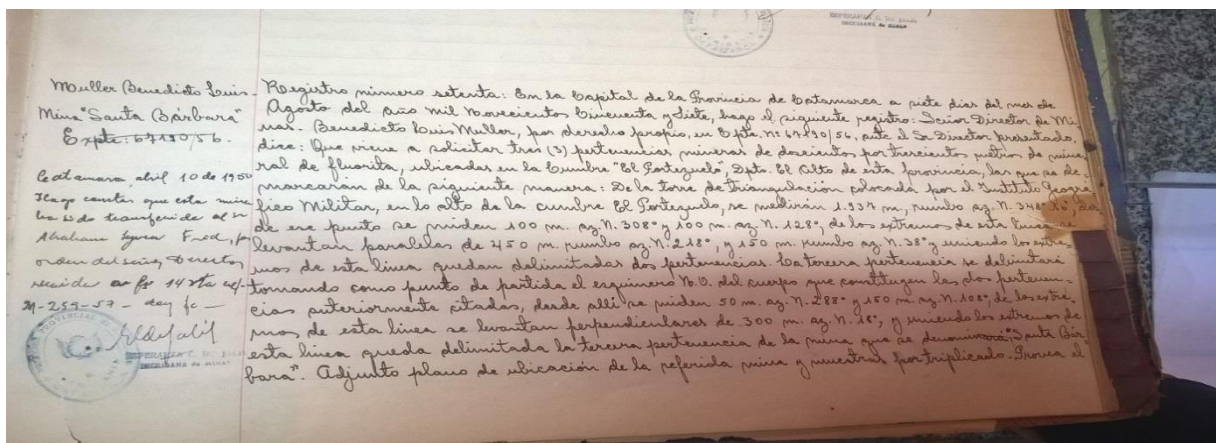 ESPERANZA C. DE
ESCRIBANA de MINAS
Muller Benedicto Luis-
Mina "Santa Bárbara"
Expte: 67190/56.
Catamarca, abril 10 de 1950
Hago constar que esta mina
ha sido transferida al sr
Abraham Fred, por
orden del señor Director
recaída a fs 14 vta
M-259-57- doy fe-
PROVINCIAL DE
ESPERANZA C. DE
ESCRIBANA de MINAS
Registro número setenta: En la Capital de la Provincia de Catamarca a siete dias del mes de
Agosto del año mil novecientos Cincuenta y Siete, hago el siguiente registro: Señor Director de Mi-
nas. Benedicto Luis Muller, por derecho propio, en Expte. nº 67190/56, ante el Sr. Director presentado,
dice: Que viene a solicitar tres (3) pertenencias mineras de doscientos por trescientos metros de mine-
ral de fluorita, ubicadas en la Cumbre "El Portezuelo", Dpto. El Alto de esta provincia, las que se de-
marcarán de la siguiente manera: De la torre de triangulación colocada por el Instituto Geogra-
fico Militar, en lo alto de la cumbre El Portezuelo, se medirán 1.937 m, rumbo az. N. 348º 16',
de ese punto se miden 100 m. az. N. 308º y 100 m. az. N. 128º, de los extremos de esta linea se
levantan paralelas de 450 m. rumbo az. N. 218º, y 150 m. rumbo az. N. 38º y uniendo los extre-
mos de esta linea quedan delimitadas dos pertenencias. La tercera pertenencia se delimitará
tomando como punto de partida el esquinero N.O. del cuerpo que constituyen las dos pertenen-
cias anteriormente citadas, desde alli se miden 50 m. az. N. 288º y 150 m. az. N. 108º, de los extre-
mos de esta linea se levantan perpendiculares de 300 m. az. N. 18º, y uniendo los extremos de
esta linea queda delimitada la tercera pertenencia de la mina que se denominará "Santa Bár-
bara". Adjunto plano de ubicación de la referida mina y muestras por triplicado. Provea el